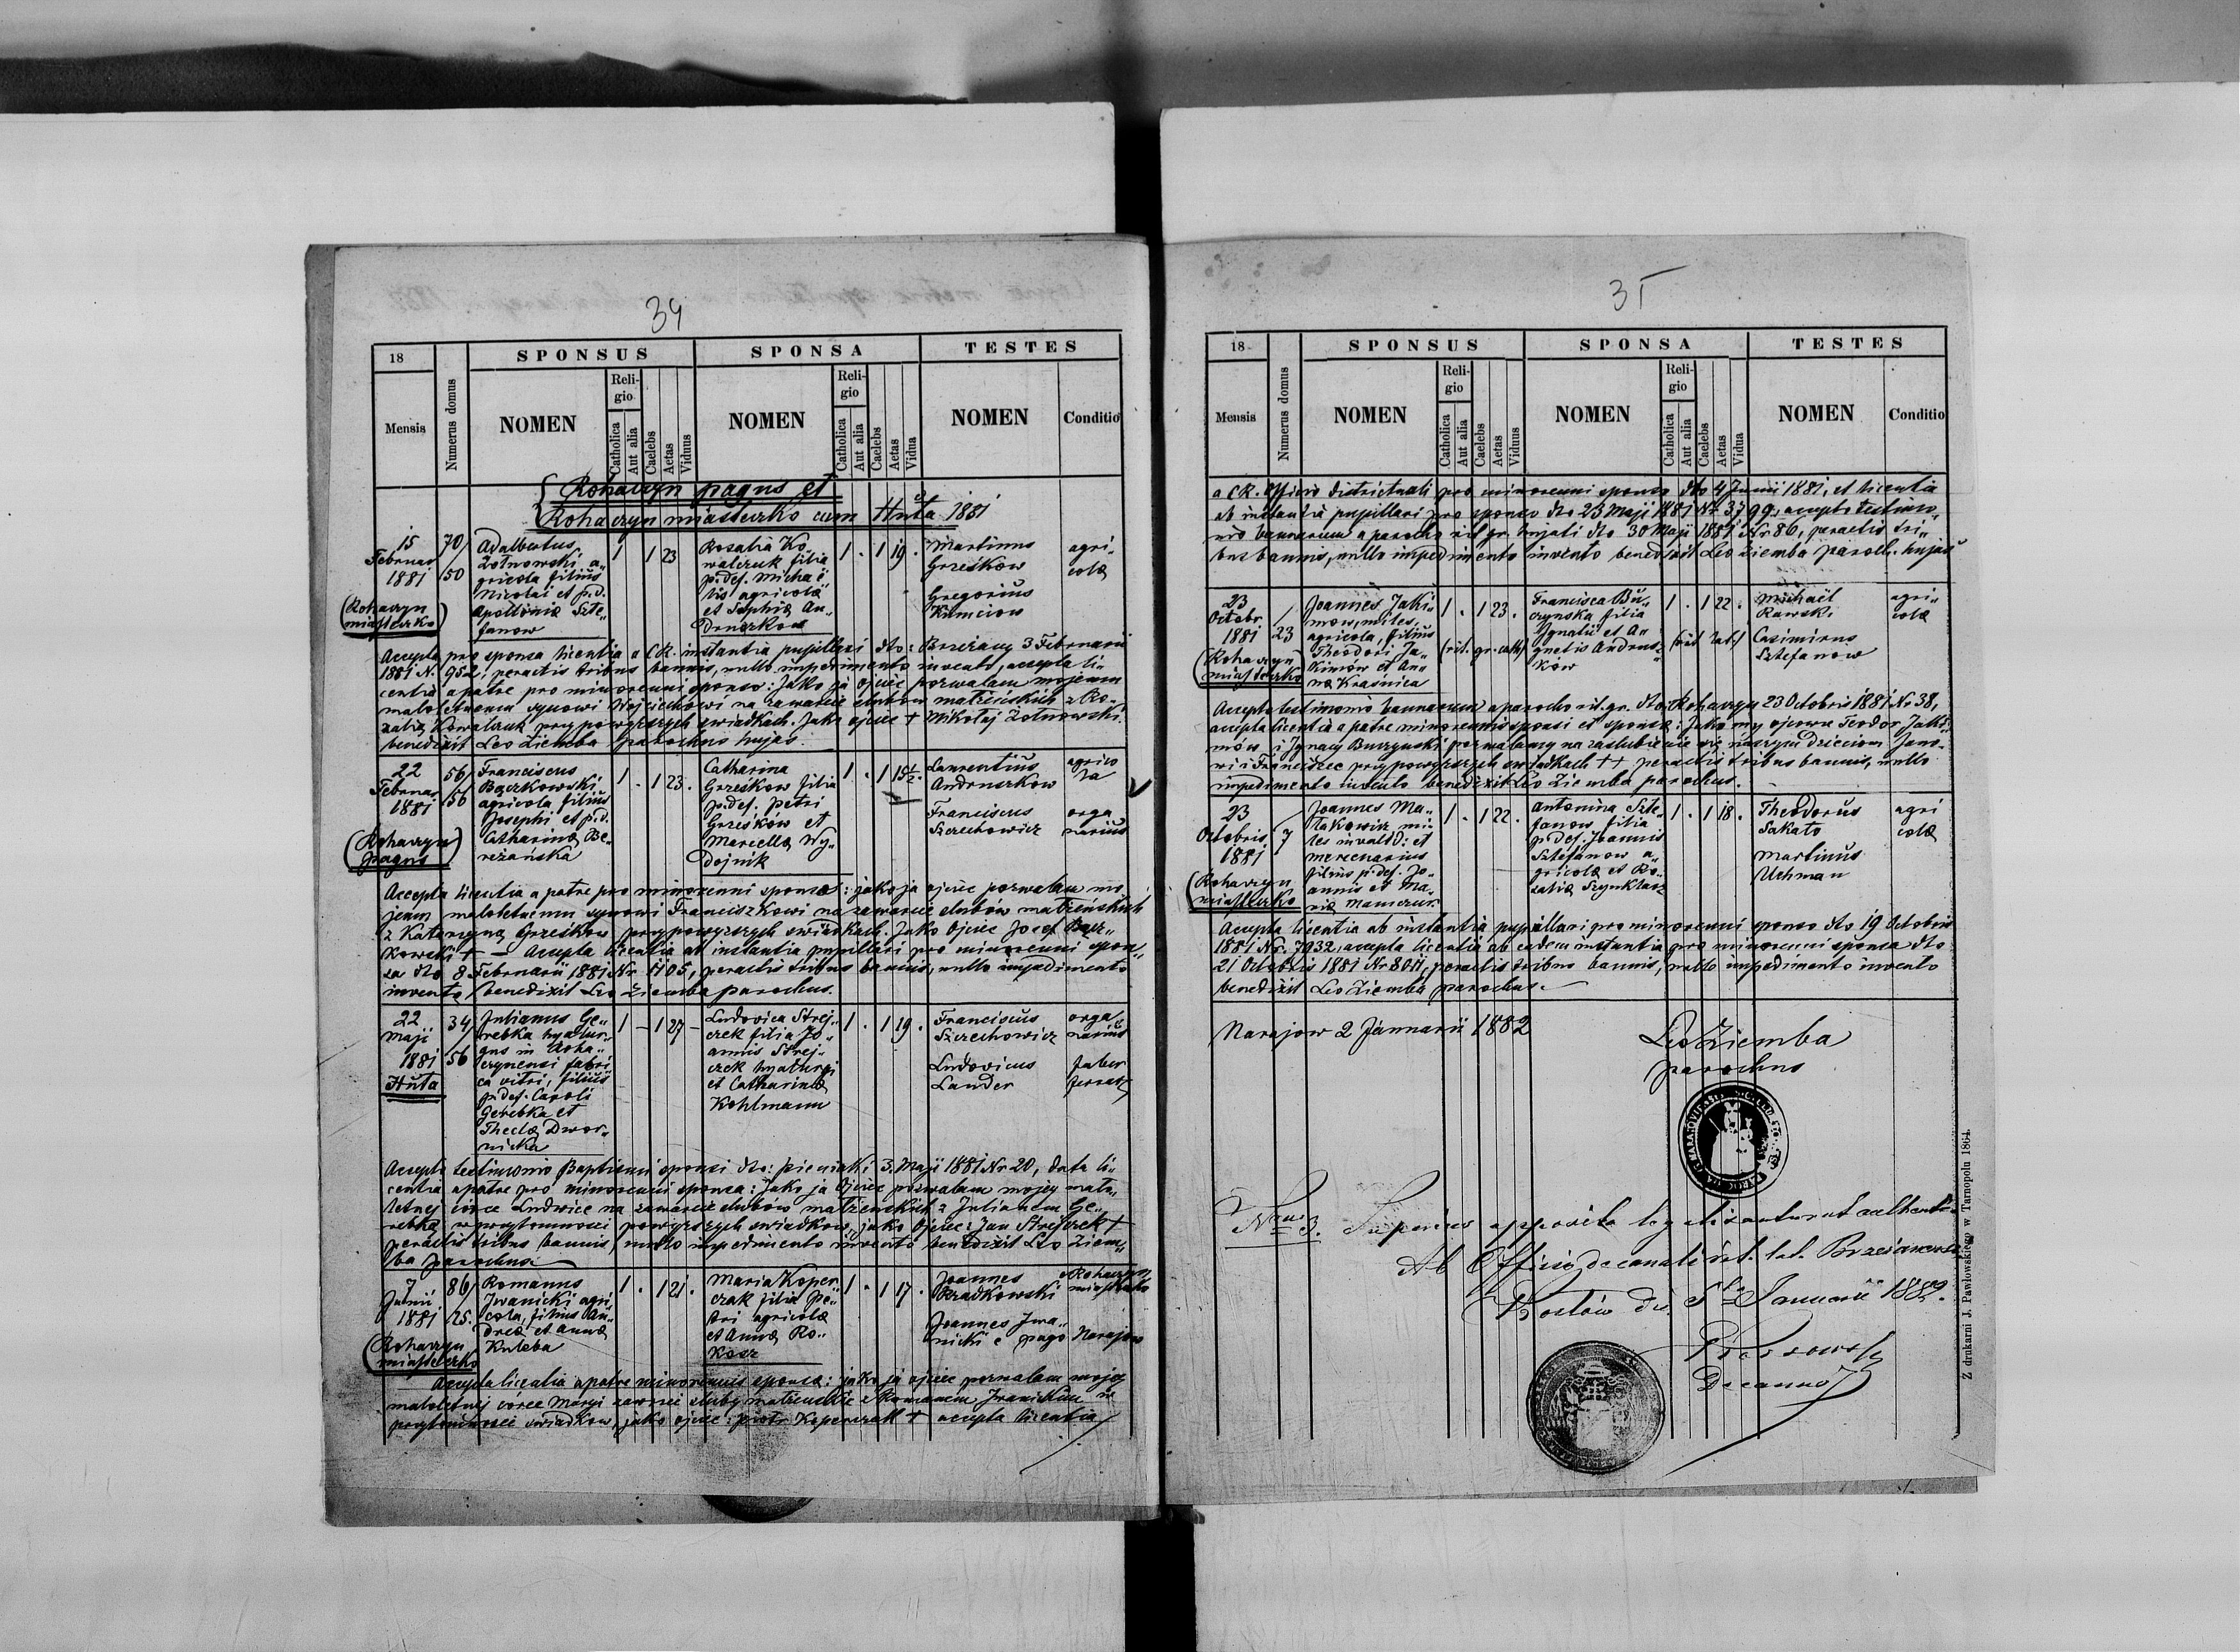 34
18
SPONSUS
SPONSA
TESTES
Mensis
Numerus domus
NOMEN
Religio
Catholica
Aut alia
Caelebs
Aetas
Viduus
NOMEN
Religio
Catholica
Aut alia
Caelebs
Aetas
Vidua
NOMEN
Conditio
Rohaczyn pagus et
Rohaczyn miasteczko cum Huta 1881
15 Februar 1881
(Rohaczyn miasteczko)
70/50
Adalbertus
Żołnowski a„
gricola filius
Nicolai et p.d.
Apolloniæ Szte„
fanow
1 1 23
Rosalia Ko„
walczuk filia
p. def. Michaë„
lis agricolæ
et Sophiæ An„
druszkow
1 . 1 19 .
Martinus
Grześkow
Gregorius
Klimciow
agri„
colæ
Accepta pro sponsa licentia a CR. instantia pupillari dto: Brzeżany 3 Februarii
1881 N. 952, peractis tribus bannis, nullo impedimento invento, accepta li„
centia a patre pro minorenni sponso: Jako ja ojciec pozwalam mojemu
małoletniemu synowi Wojciechowi na zawarcie ślubów małżeńskich z Ro„
zalią Kowalczuk przy powyższych świadkach. Jako ojciec + Mikołaj Żołnowski.
benedixit Leo Ziemba parochus hujas.
22 Februar 1881
(Rohaczyn pagus)
56/56
Franciscus
Bączkowski
agricola filius
Josephi et p.d.
Catharinæ Be„
reżańska
1 . 1 23 .
Catharina
Grześkow filia
p. def. Petri
Grześków et
Marcellæ Wy„
dojnik
1 . 1 15½ .
Laurentius
Andruszkow
Franciscus
Szzechowicz
agrico
la
orga
narius
Accepta licentia a patre pro minorenni sponso: jako ja ojciec pozwalam mo„
jemu małoletniemu synowi Franciszkowi na zawarcie ślubów małżeńskich
z Katarzyną Grześkow przy powyższych świadkach. Jako Ojciec Józef Bącz„
kowski + — Accepta licentia ab instantia pupillari pro minorenni spon„
sa dto 8 Februarii 1881 Nr. 1105, peractis tribus bannis, nullo impedimento
invento, benedixit Leo Ziemba parochus.
22 Maji 1881
Huta
34/56
Julianus Ge„
rebka hyalur„
gus in Roha„
czynensi fabri„
ca vitri, filius
p. def. Caroli
Gerebka et
Theclæ Dwor„
nicka
1 – 1 27 –
Ludovica Strej„
czek filia Jo„
annis Strej„
czek hyalurgi
et Catharinæ
Kohlmann
1 . 1 19 .
Franciscus
Szzechowicz
Ludovicus
Lander
orga
narius
faber
Accepto testimonio Baptismi sponsi dto: Pieniaki 3. Maji 1881 Nr 20, data li„
centia a patre pro minorenni sponsa: Jako ja Ojciec pozwalam mojej mało„
letniej córce Ludwice na zawarcie ślubów małżeńskich z Julianem Ge„
rebką w przytomności powyższych świadków, jako Ojciec: Jan Strejczek +
peractis tribus bannis, nullo impedimento invento benedixit Leo Ziem„
ba parochus
7 Junii 1881
(Rohaczyn miasteczko
86/25.
Romanus
Iwanicki agri„
cola, filius An„
dreæ et Annæ
Kuleba
1 . 1 21 .
Maria Koper„
czak filia Pe„
tri agricolæ
et Annæ Ro„
kosz
1 . 1 17 .
Joannes
Bradkowski
Joannes Iwa„
nicki e pago Narajow
e Rohaczyn
miasteczko
Accepta licentia a patre minorennis sponsæ: jako ja ojciec pozwalam mojej
małoletniej córce Maryi zawrzeć śluby małżeńskie z Romanem Iwanickim w
przytomności świadkow, jako ojciec: Piotr Koperczak + accepta licentia
35
18
SPONSUS
SPONSA
TESTES
Mensis
Numerus domus
NOMEN
Religio
Catholica
Aut alia
Caelebs
Aetas
Viduus
NOMEN
Religio
Catholica
Aut alia
Caelebs
Aetas
Vidua
NOMEN
Conditio
a CR. Officio districtuali pro minorenni sponso dto 4 Junii 1881, et licentia
ab instantia pupillari pro sponso dto 23 Maji 1881 Nr 3799, accepto testimo„
nio bannorum a parocho rit. gr. hujati dto 30 Maji 1881 Nr. 86, peractis tri„
bus bannis, nullo impedimento invento benedixit Leo Ziemba paroch. hujas
23 Octobr. 1881
(Rohaczyn miasteczko
23
Joannes Jaki„
mow, miles,
agricola, filius
Theodori Ja„
kimów et An„
næ Kraśnica
1 . 1 23 .
(rit. gr. cath)
Francisca Bu„
czynska filia
Ignatii et A„
gnetis Andrus„
ków
1 . 1 22 .
(rit lat)
Michaël
Rawski
Casimirus
Sztefanow
agri„
colæ
Accepto testimonio bannorum a parocho rit. gr. dto: Rohaczyn 23 Octobris 1881 Nr 38,
accepta licentia a patre minorennis sponsi et sponsæ: Jako my ojcowie Teodor Jaki„
mów i Ignacy Buczynski pozwalamy na zaślubienie się naszym dzieciom Jano„
wi i Franciszce przy powyższych świadkach ++ peractis tribus bannis, nullo
impedimento invento benedixit Leo Ziemba parochus.
23 Octobris 1881
(Rohaczyn miasteczko
7
Joannes Ma„
łakowicz mi„
les invalid: et
mercenarius
filius p. def. Jo„
annis et Ma„
riæ Mamczur
1 . 1 22 .
Antonina Szte„
fanow filia
p. def. Joannis
Sztefanow a„
gricolæ et Ro„
saliæ Szynklarz
1 . 1 18 .
Theodorus
Sakato
Martinus
Uchman
agri
colæ
Accepta licentia ab instantia pupillari pro minorenni sponso dto 19 Octobris
1881 Nr. 7932, accepta licentia ab eadem instantia pro minorenni sponsa dto
21 Octobris 1881 Nr 8011, peractis tribus bannis, nullo impedimento invento
benedixit Leo Ziemba parochus.
Narajow 2 Januarii 1882
Leo Ziemba
parochus
Nrus 3. Superius apposita legalisantur ut authentica
Ab Officio decanali rit. lat. Brzeżanensi
Kozłów die 5ta Januarii 1882.
Decanus
Z drukarni J. Pawłowskiego w Tarnopolu 1864.